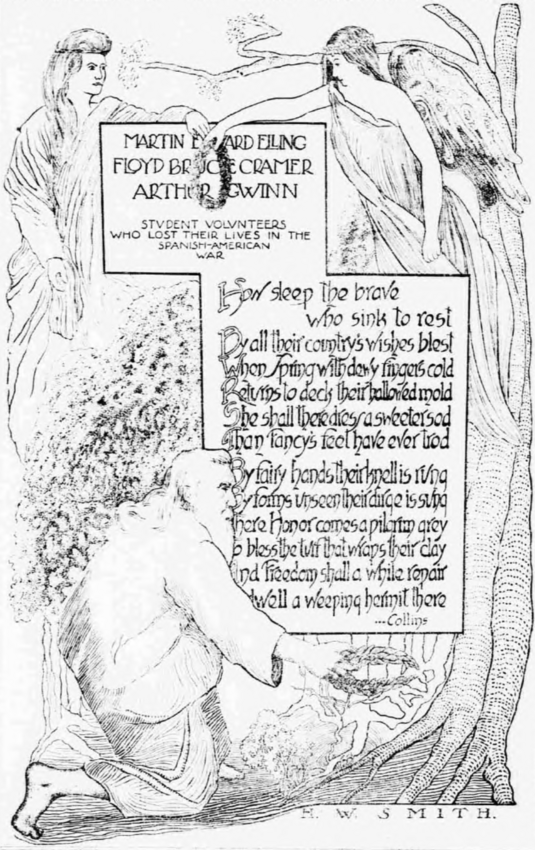 MARTIN E ARD ELLING
FLOYD BRUCE CRAMER
ARTHUR GWINN
STVDENT VOLVNTEERS
WHO LOST THEIR LIVES IN THE
SPANISH-AMERICAN
WAR
How sleep the brave
who sink to rest
By all their country's wishes blest
When Spring with dewy fingers cold
Returns to deck their hallowed mold
She shall there dress a sweeter sod
Than fancy's feet have ever trod
By fairy hands their knell is rung
By forms unseen their dirge is sung
There Honor comes a pilgrim grey
o bless the turf that wraps their clay
nd Freedom shall a while repair
dwell a weeping hermit there
...Collins
H. W. SMITH.